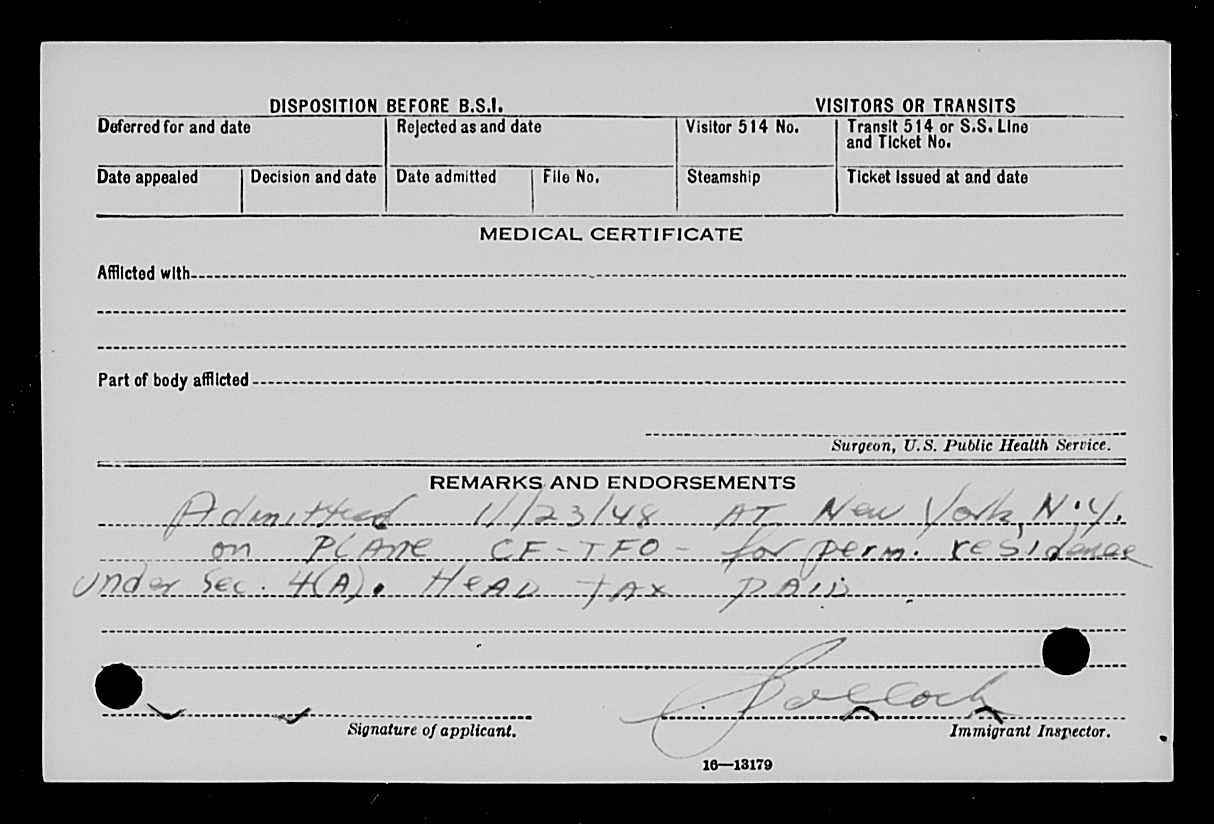 DISPOSITION BEFORE B.S.I.
VISITORS OR TRANSITS
Deferred for and date
Rejected as and date
Visitor 514 No.
Transit 514 or S.S. Line
and Ticket No.
Date appealed
Decision and date
Date admitted
File No.
Steamship
Ticket issued at and date
MEDICAL CERTIFICATE
Afflicted with
Part of body afflicted
Surgeon, U.S. Public Health Service.
REMARKS AND ENDORSEMENTS
Admitted 11/23/48 AT New York, N.Y.
on PLANE CF-TFO - for perm. residence
under Sec. 4(A). HEAD TAX PAID
Signature of applicant.
Immigrant Inspector.
16—13179